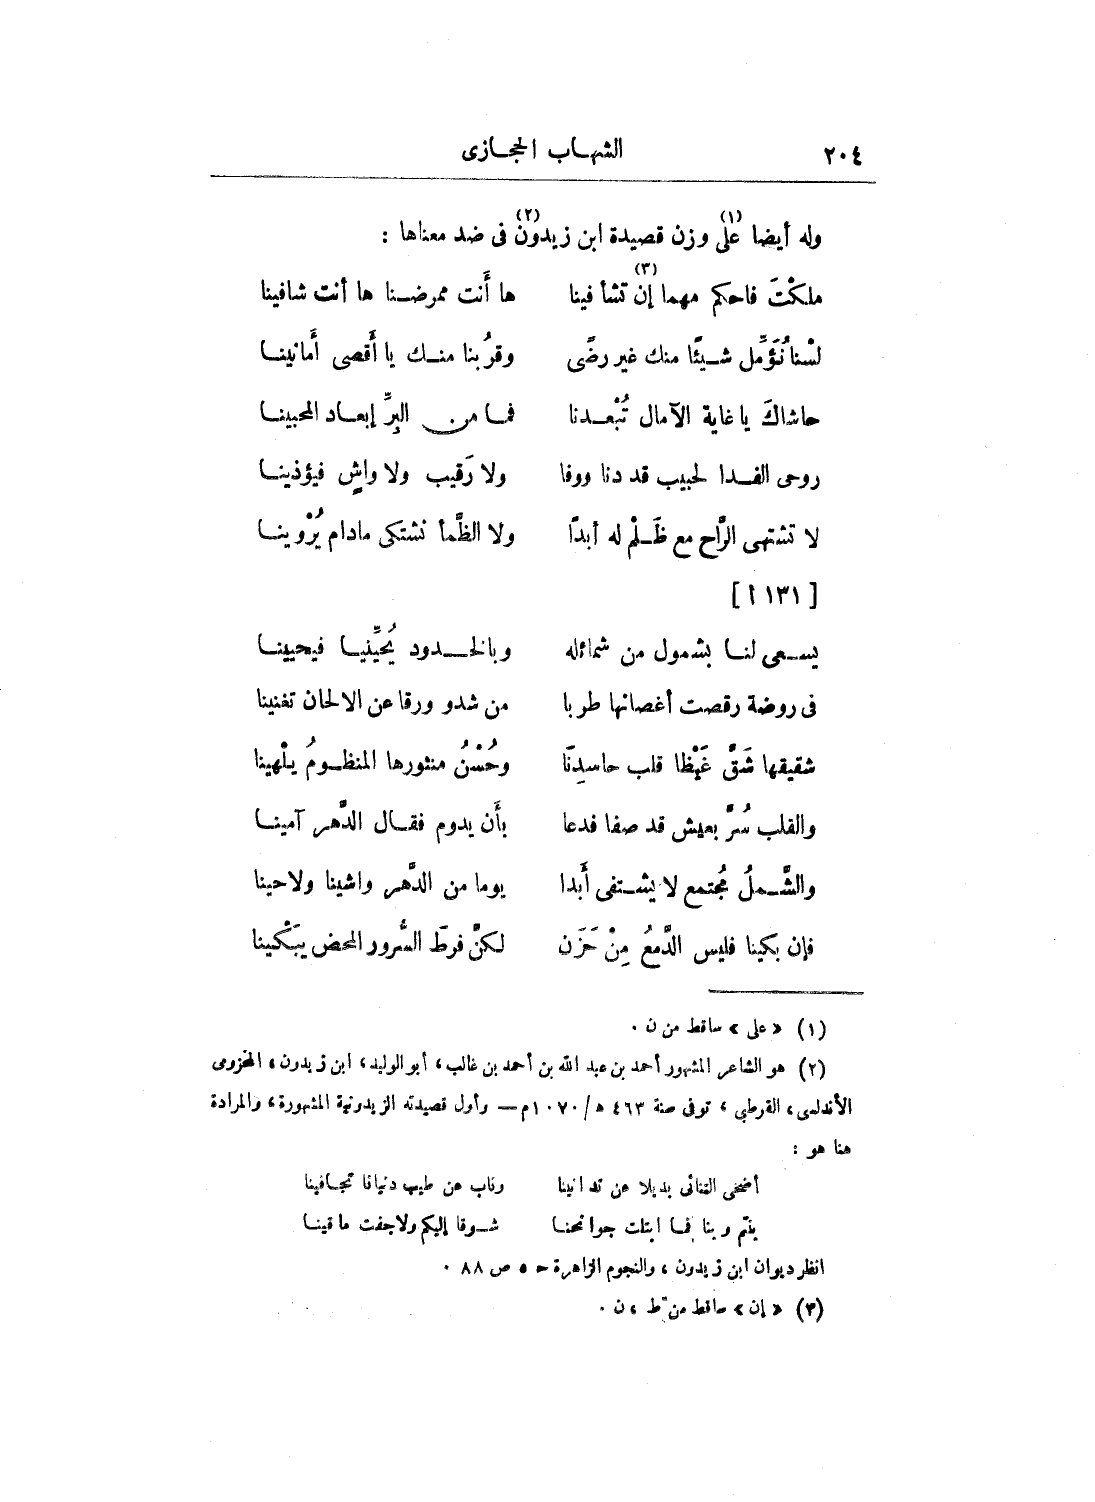 ٢٠٤ الشهاب الحجازى
وله أيضا على (١) وزن قصيدة ابن زيدون (٢) فى ضد معناها :
ملكْتَ فاحكم مهما إن (٣) تشأ فينا ها أَنت ممرضنا ها أنت شافينا
لسْنا نُؤَمِّل شيئًا منك غير رضًى وقرُبنا منك يا أَقصى أَمانينا
حاشاكَ يا غاية الآمال تُبْعدنا فما من البِرِّ إبعاد المحبينا
روحى الفدا لحبيب قد دنا ووفا ولا رَقيب ولا واشٍ فيؤذينا
لا تشتهى الرَّاح مع ظَلْم له أبدًا ولا الظَّمأ نشتكى مادام يُرْوينا
[ ١٣١ أ ]
يسعى لنا بشمول من شمائله وبالخدود يُحَيِّنيا فيحيينا
فى روضة رقصت أغصانها طربا من شدو ورقا عن الالحان تغنينا
شقيقها شَقَّ غَيْظا قلب حاسدِنَا وحُسْنُ منثورها المنظومُ يلْهينا
والقلب سُرَّ بعيش قد صفا فدعا بأَن يدوم فقال الدَّهر آمينا
والشَّملُ مُجتمع لا يشتفى أَبدا يوما من الدَّهر واشينا ولاحينا
فإن بكينا فليس الدَّمعُ مِنْ حَزَن لكنَّ فرطَ السُّرور المحض يبَكْينا
(١) « على » ساقط من ن .
(٢) هو الشاعر المشهور أحمد بن عبد الله بن أحمد بن غالب ، أبو الوليد ، ابن زيدون ، المخزومى
الأندلسى ، القرطبي ، توفى سنة ٤٦٣ هـ/١٠٧٠م — وأول قصيدته الزيدونية المشهورة ، والمرادة
هنا هو :
أضحى التنائى بديلا عن تدانينا وناب عن طيب دنيانا تجافينا
بنتم وبنا فما ابتلت جوانحنا شوقا إليكم ولا جفت مآقينا
انظر ديوان ابن زيدون ، والنجوم الزاهرة حـ ٥ ص ٨٨ .
(٣) « إن » ساقط من ط ، ن .